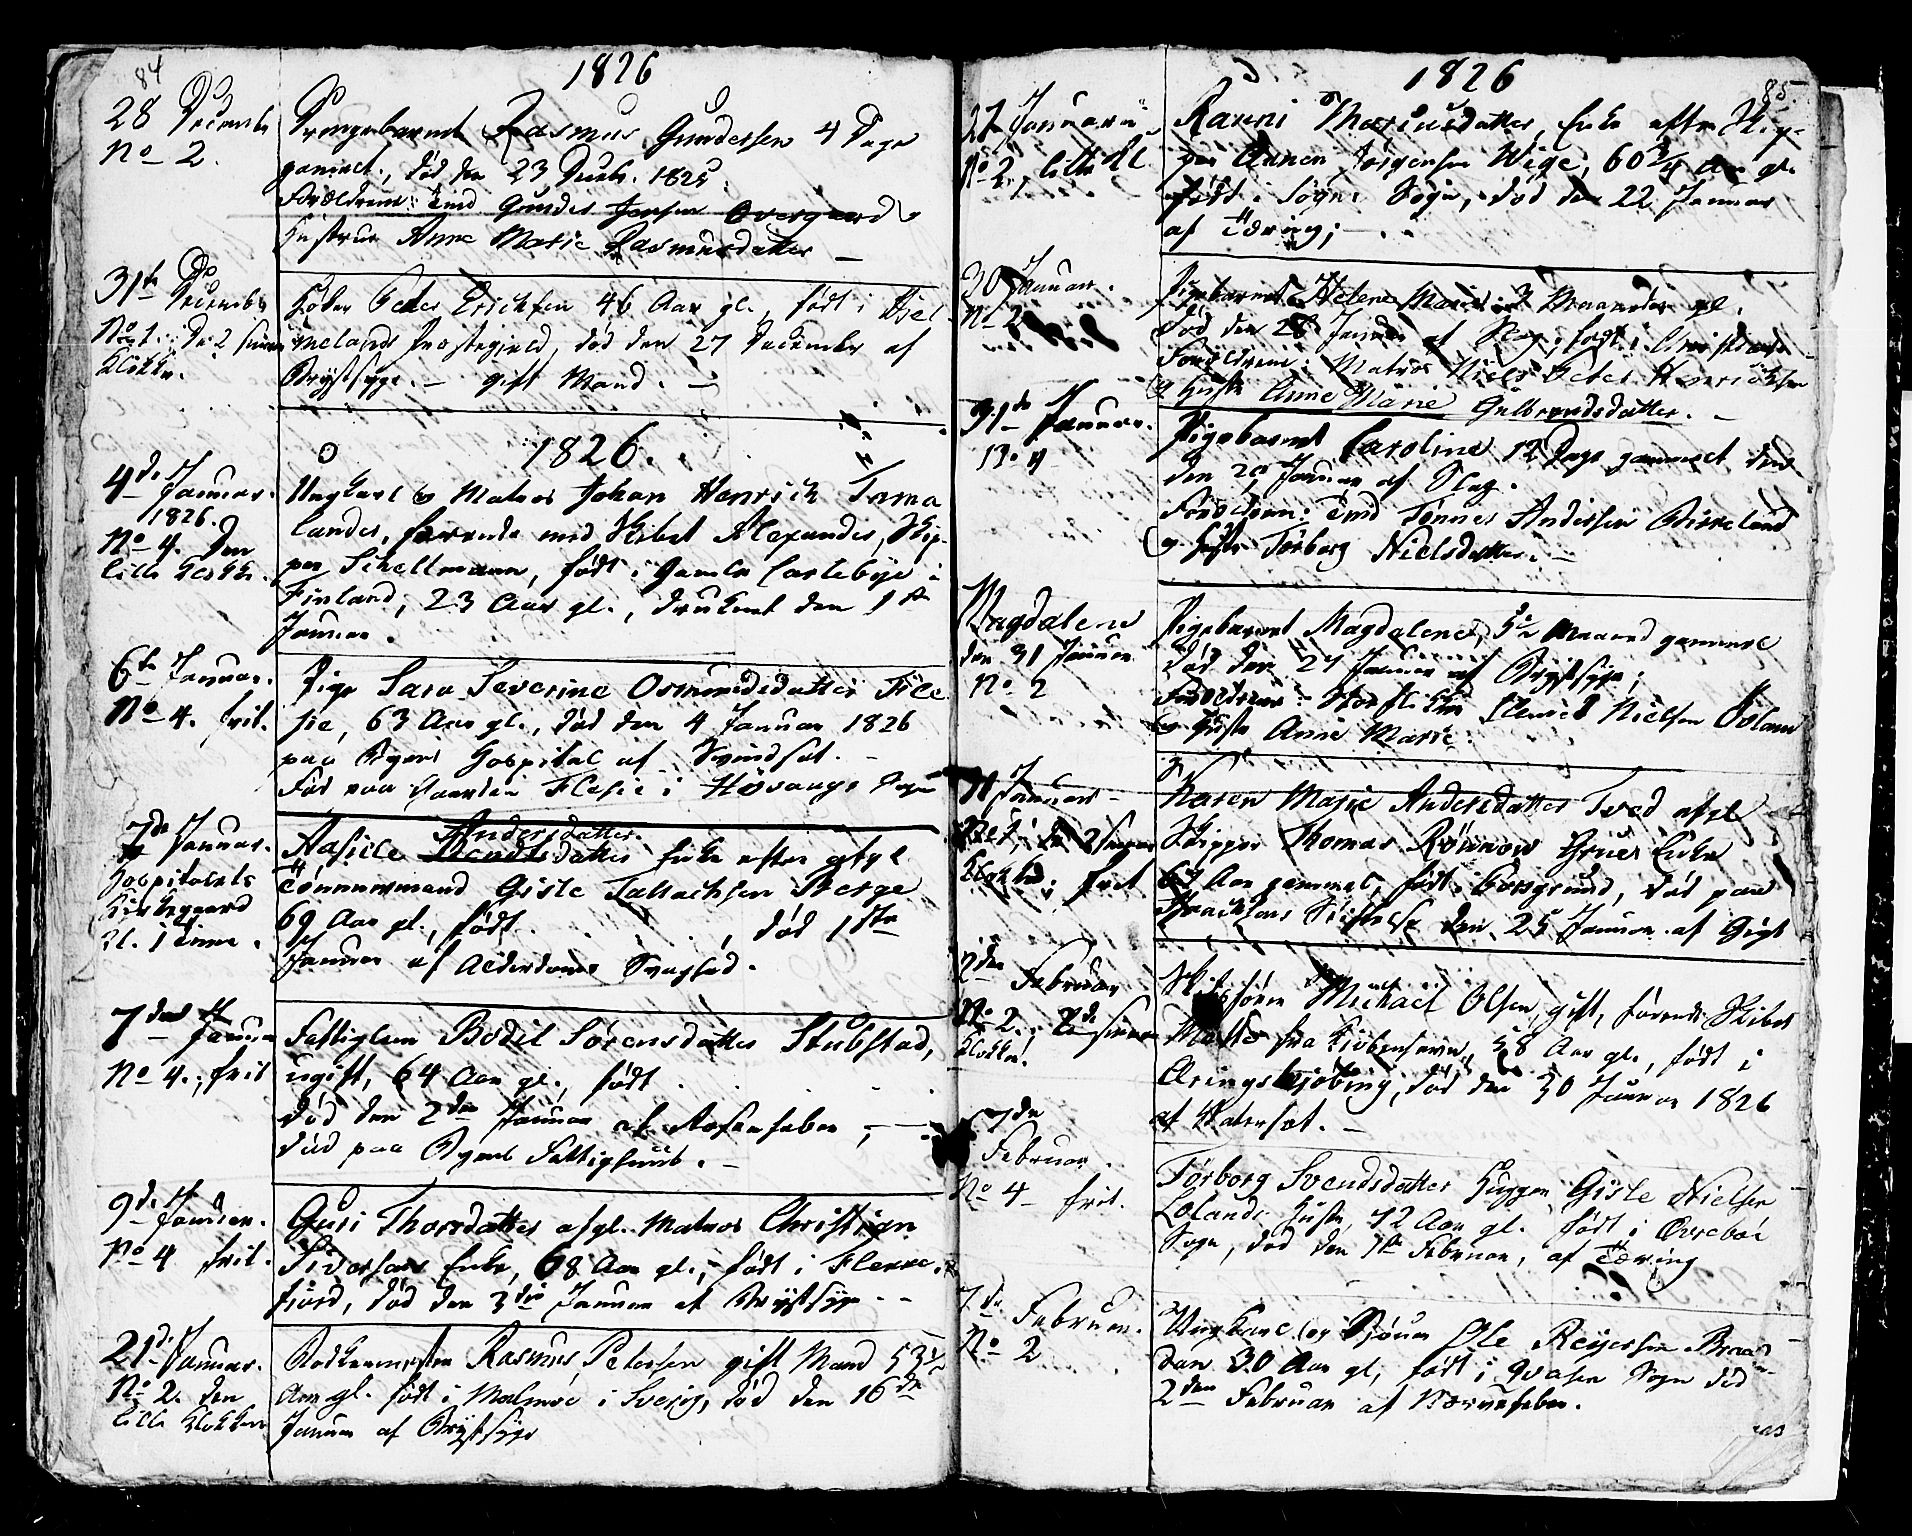 84
1826
28 Decembr
No 2.
Drengebarnet Rasmus Gundersen 4 Dage
gammel, død den 23 Decbr. 1825
Forældrene: Tmd Gunder Jensen Overgaard &
Hustrue Anne Marie Rasmusdatter —
31te December
No 1; De 2 smaae
Klokker.
Peder Erichsen 46 Aar gl., født i Hjel
melands Præstegjeld, død den 27 December af
Brystsyge. — gift Mand. —
1826.
4de Januar.
1826.
No 4. Den
lille Klokke.
Ungkarl & Matros Johan Henrich Torna
lander, farende med Skibet Alexander, Skip-
per Schellmann, født i Gamle Carlebye i
Finland, 23 Aar gl., druknet den 1ste
Januar.
6te Januar.
No 4. frit.
Pige Sara Severine Osmundsdatter Fle
sie, 63 Aar gl., død den 4 Januar 1826
paa Byens Hospital af Svindsot. —
Fød paa Gaarden Flesie i Høvaags Sogn
7de Januar.
Hospitalets
Kirkegaard
Kl. 1 Time.
Aasille Bendtsdatter Andersdatter Enke efter afgl
Tømmermand Gisle Tallachsen Berge
69 Aar gl., født . . . , død 1ste
Januar af Alderdoms Svaghed.
7de Januar
No 4., frit
Fattiglem Bodil Sørensdatter Stubstad,
ugift, 64 Aar gl., født . . .
død den 2den Januar af
død paa Byens Fattighuus. —
9de Januar.
No 4 frit.
Guri Thorsdatter afgl. Matros Christian
Siversens Enke, 68 Aar gl., født i Flekke-
fjord, død den 3die Januar af Brystsyge - -
21de Januar.
No 2. den
lille Klokken
Rasmus Petersen gift Mand 53½
Aar gl. født i Malmøe i Sverig, død den 16de
Januar af Brystsyge
85.
1826
27 Januar
No 2, lille Kl
Ranni Mariusdatter, Enke efter Skip-
per Aanen Jørgensen Wige, 60 3/4 Aar gl.
født i Søgne Sogn, død den 22 Januar
af Tæring; —
30 Januar.
No 2
Pigebarnet Helene Marie, 3 Maaneder gl.
død den 28 Januar af Slag, født i Christians
Forældrene: Matros Niels Peter Henrichsen
& Hustr Anne Marie Gulbrandsdatter. —
31de Januar.
No 4
Pigebarnet Caroline 12 Dage gammel død
den 29 Januar af Slag.
Forældrene: Tmd Tønnes Andersen Birkeland
& Hustr Torborg Nielsdatter. —
Magdalene
den 31 Januar
No 2
Pigebarnet Magdalene, 5te Maaned gammel
død den 27 Januar af Brystsyge;
Forældrene: Nielsen
& Hustr Anne Marie.
31 Januar —
No 1, de 2 smaae
Klokker; frit
Karen Marie Andersdatter Tved afgl
Skipper Thomas Rønnow Enke
67 Aar gammel, født i Porsgrund, død paa
Stiftelse den 25 Januar af Gigt
2den
Februar
No 2, de smaae
Klokker.
Skibsfører Michael Olsen, gift, førende Skibet
fra Kjøbenhavn, 58 Aar gl., født i
Ringkjøbing, død den 30 Januar 1826
af —
7de
Februar.
No 4 — frit.
Torborg Svendsdatter Huggen Gisle Nielsen
Lolands Hustr, 72 Aar gl. født i Øvrebøe
Sogn, død den 1ste Februar, af Tæring
7de
Februar.
No 2
Ungkarl og Ole Reyersen Braa
dan 30 Aar gl, født i Qvasen Sogn død
2den Februar af Nervefeber.